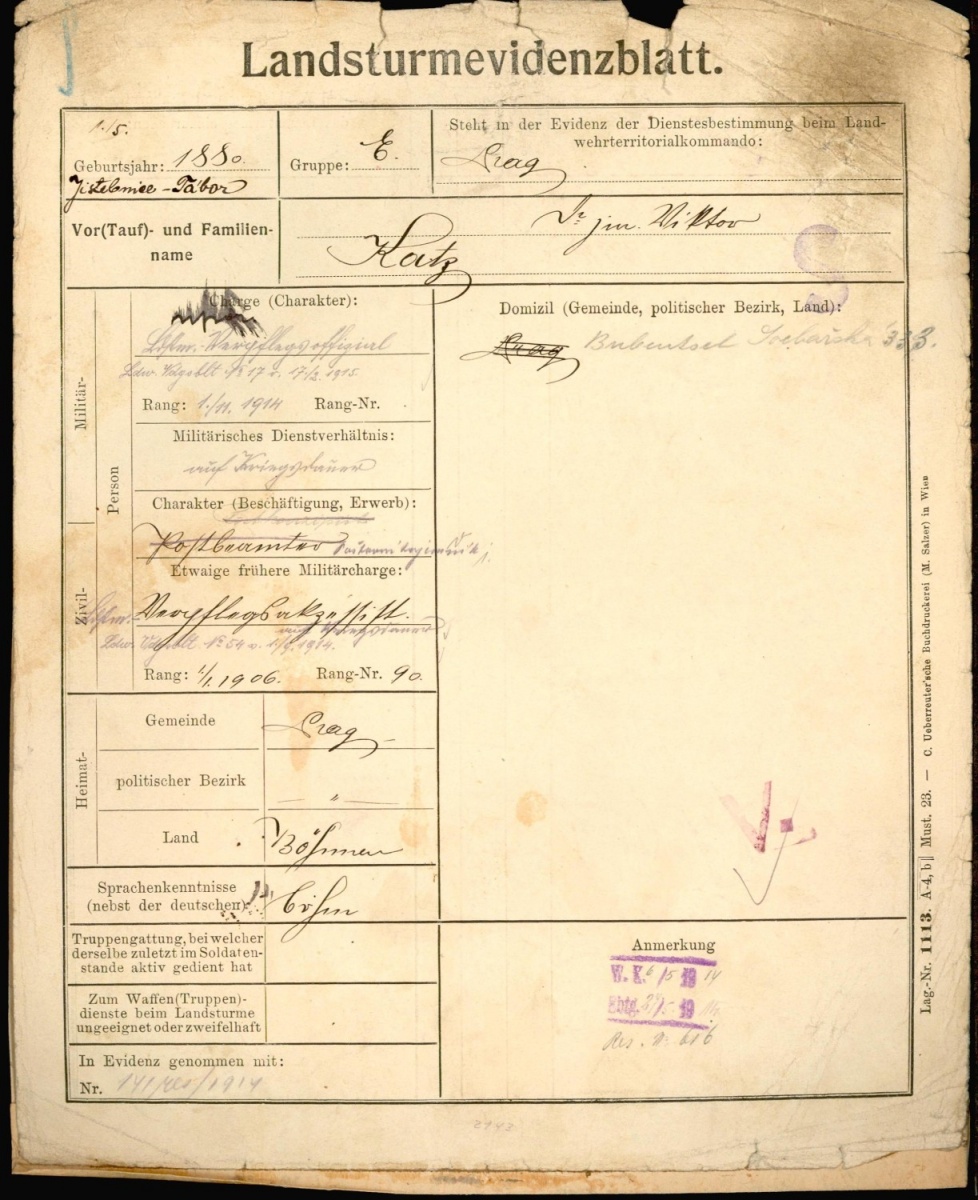 Landsturmevidenzblatt.
1./5.
Geburtsjahr: 1880.
Jistebnice - Tábor
Gruppe: E.
Steht in der Evidenz der Dienstesbestimmung beim Land-
wehrterritorialkommando:
Prag
Vor(Tauf)- und Familien-
name
Dr jur. Viktor
Katz
Militär-
Person
Zivil-
Charge (Charakter):
Ldstm.-Verpflegsoffizial
Ldw. Vdgsblt. No 17 v. 17/2. 1915.
Rang: 1./11. 1914 Rang-Nr.
Militärisches Dienstverhältnis:
auf Kriegsdauer
Charakter (Beschäftigung, Erwerb):
Postbeamter
Etwaige frühere Militärcharge:
Ldstm. Verpflegsakzessist.
auf Kriegsdauer
Ldw. Vdgsblt. No 54 v.
Rang: 1/1. 1906. Rang-Nr. 90.
Domizil (Gemeinde, politischer Bezirk, Land):
Prag Bubentsch 333.
Heimat-
Gemeinde
Prag
politischer Bezirk
— „ —
Land
Böhmen
Sprachenkenntnisse
(nebst der deutschen):
böhm
Truppengattung, bei welcher
derselbe zuletzt im Soldaten-
stande aktiv gedient hat
Zum Waffen(Truppen)-
dienste beim Landsturme
ungeeignet oder zweifelhaft
In Evidenz genommen mit:
Nr. 141/res/1914
V.
Anmerkung
W. K. 6/5 1914
Rbtg. 29/5 19
Res. N: 616
Lag.-Nr. 1113. A-4, b Must. 23. — C. Ueberreuter'sche Buchdruckerei (M. Salzer) in Wien
2143